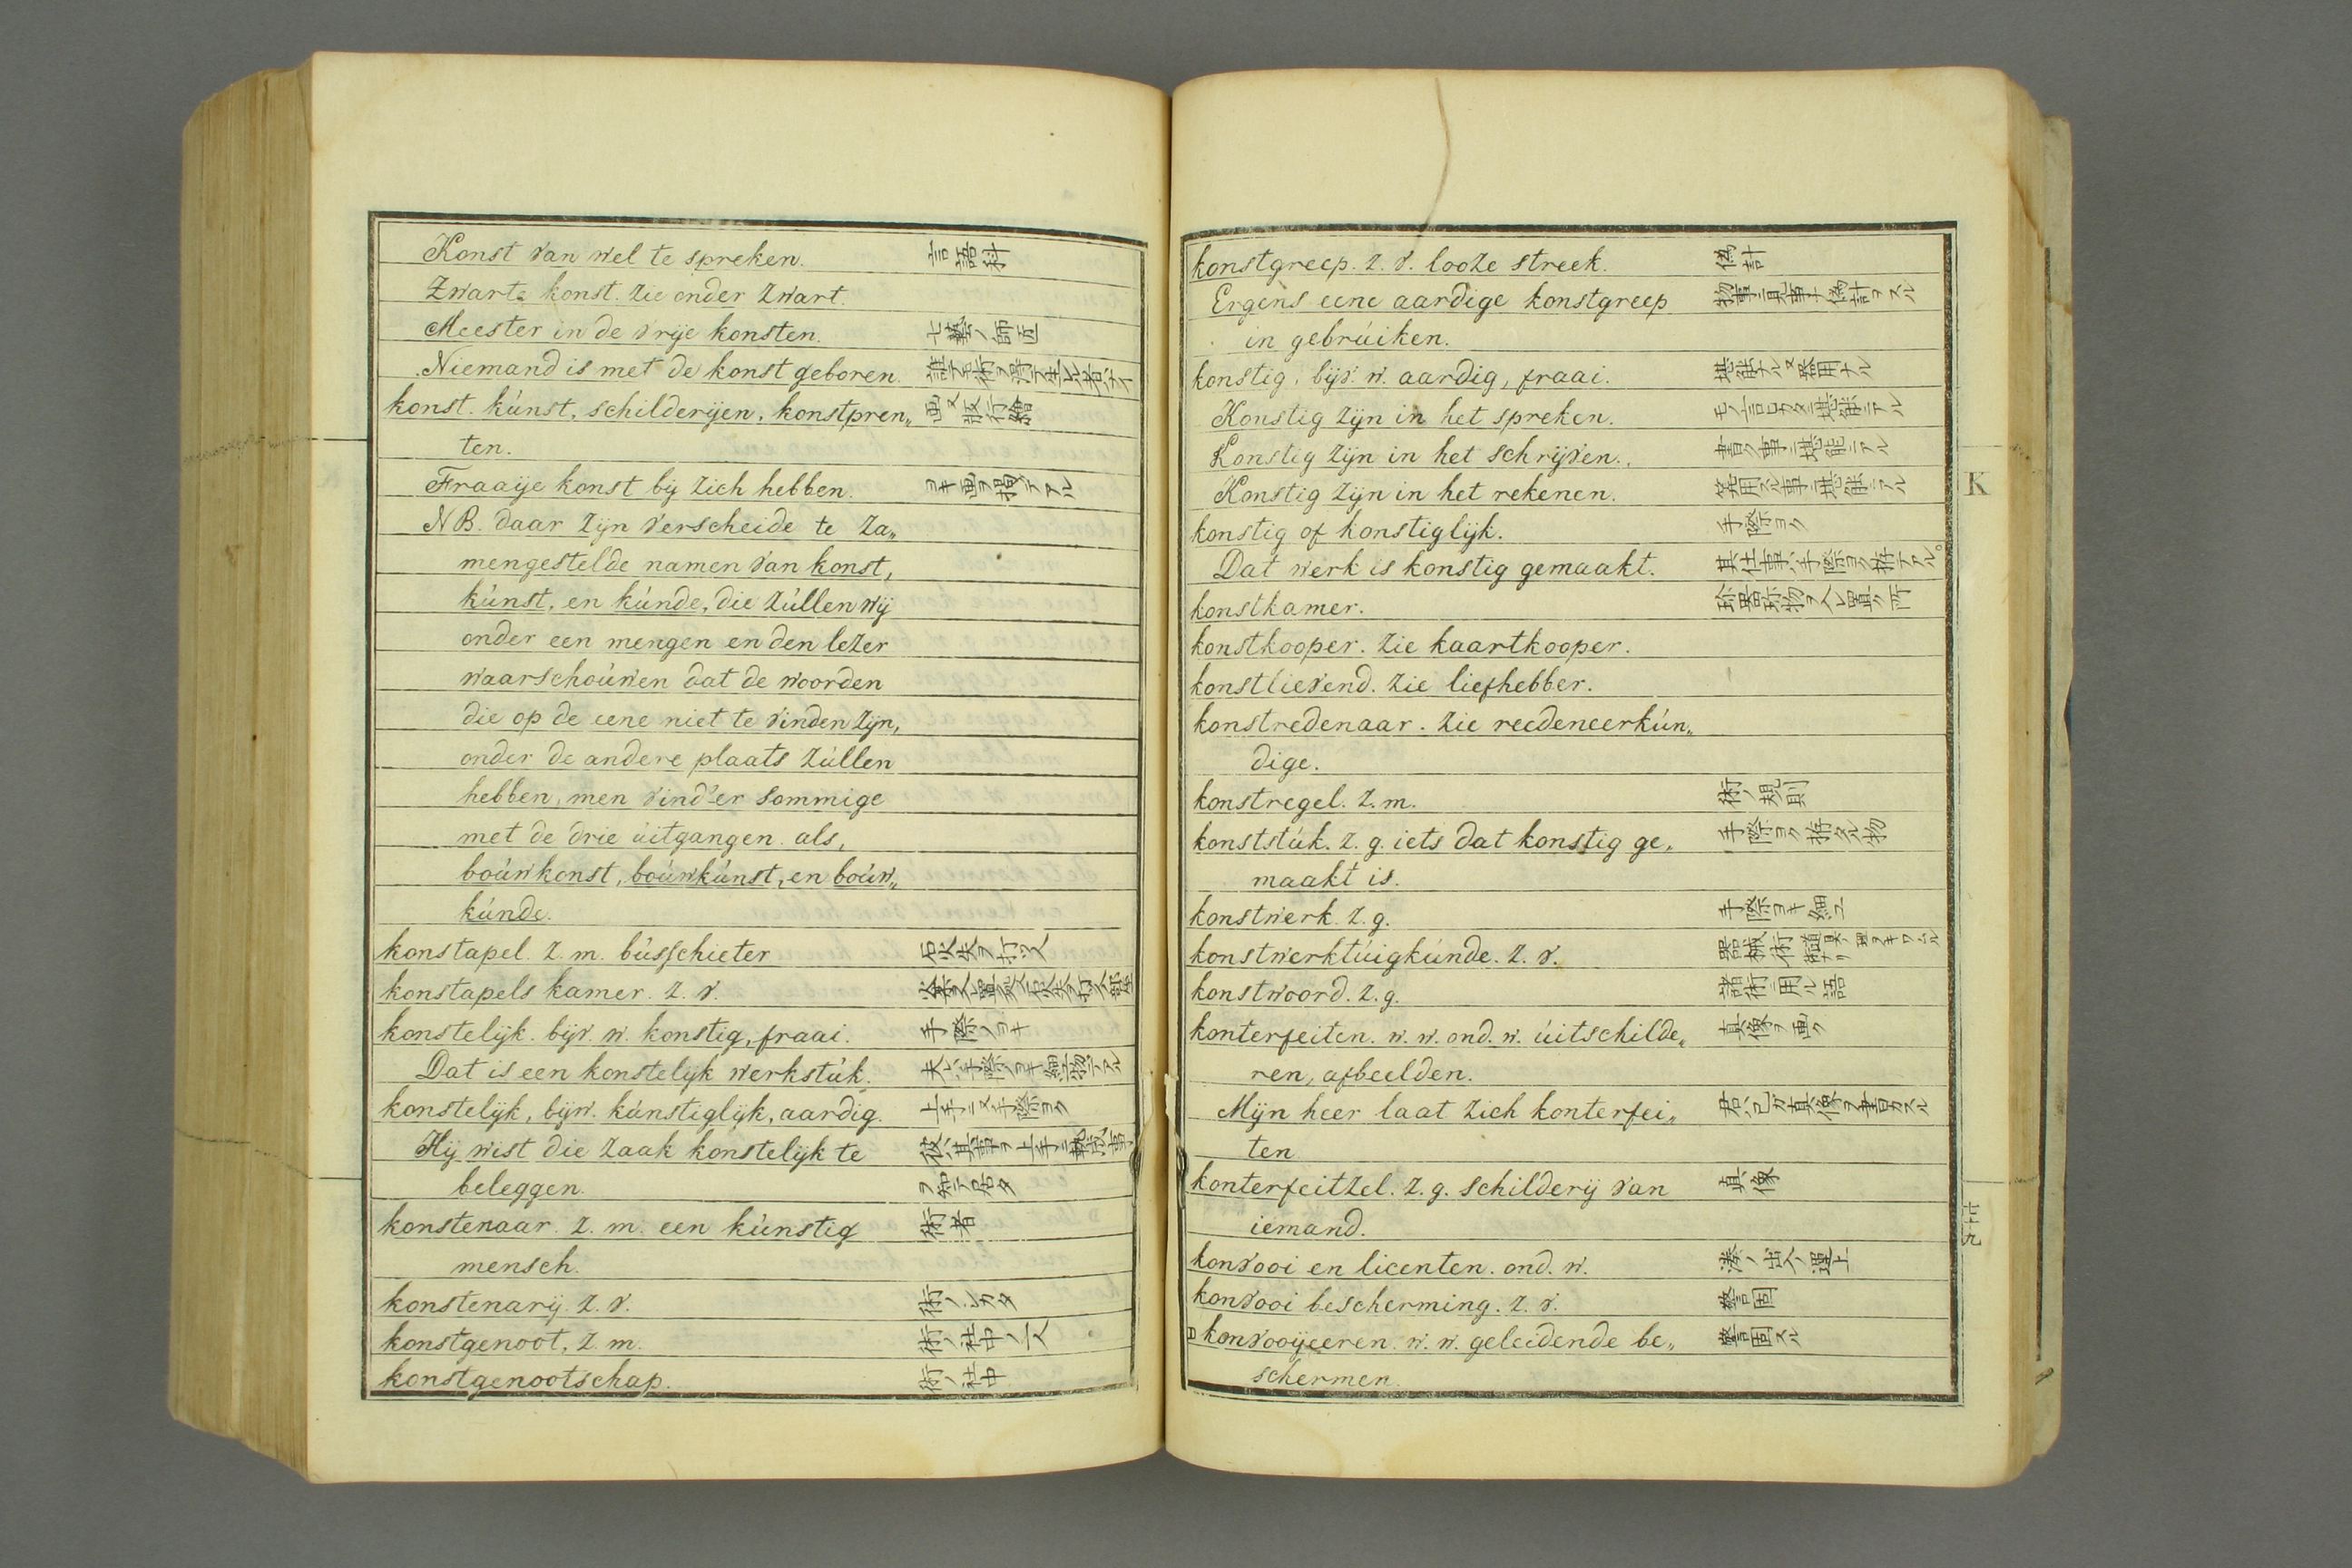 Konst van wel te spreken. 言語科
Zwarte konst. Zie onder Zwart.
Meester in de vrije konsten. 七藝ノ師匠
Niemand is met de konst geboren.
konst. kúnst, schilderijen, konstpren„
ten.
Fraaije konst bij Zich hebben.
NB. daar Zijn verscheide te Za„
mengestelde namen van konst,
kúnst, en kúnde, die Zúllen wij
onder een mengen en den leZer
waarschoúwen dat de woorden
die op de eene niet te vinden Zijn,
onder de andere plaats Zúllen
hebben, men vind'er sommige
met de drie úitgangen. als,
boúwkonst, boúwkúnst, en boúw„
kúnde.
konstapel. Z. m. bússchieter
konstapels kamer. Z. v.
konstelijk. bijv. w. konstig, fraai. 手際ノヨキ
Dat is een konstelijk werkstúk.
konstelijk, bijw. kúnstiglijk, aardig. 上手ニ又手際ヨク
Hij wist die Zaak konstelijk te
beleggen.
konstenaar. Z. m. een kúnstig 術者
mensch.
konstenarij. Z. v. 術ノシカタ
konstgenoot, Z. m. 術ノ社中ノ一人
konstgenootschap. 術ノ社中
konstgreep. Z. v. looZe streek. 偽計
Ergens eene aardige konstgreep
in gebrúiken.
konstig. bijv. w. aardig, fraai. 堪能ナル又器用ナル
Konstig Zijn in het spreken.
Konstig Zijn in het schrijven. 書ク事ニ堪能テアル
Konstig Zijn in het rekenen.
konstig of konstiglijk. 手際ヨク
Dat werk is konstig gemaakt.
konstkamer. 珎器珎物ヲ入レ置ク所
konstkooper. Zie kaartkooper.
konstlievend. Zie liefhebber.
konstredenaar. Zie reedeneerkún„
dige.
konstregel. Z. m. 術ノ規則
konststúk. Z. g. iets dat konstig ge„ 手際ヨク拵タル物
maakt is.
konstwerk. Z. g. 手際ヨキ細工
konstwerktúigkúnde. Z. v.
konstwoord. Z. g. 諸術ニ用ル語
konterfeiten. w. w. ond. w. úitschilde„ 真像ヲ画ク
ren, afbeelden.
Mijn heer laat Zich konterfei„
ten
konterfeitzel. Z. g. schilderij van 真像
iemand.
konvooi en licenten. ond. w. 湊ノ出入ノ運上
konvooi bescherming. Z. v. 警固
konvooijeeren. w. w. geleidende be„ 警固スル
schermen.
K